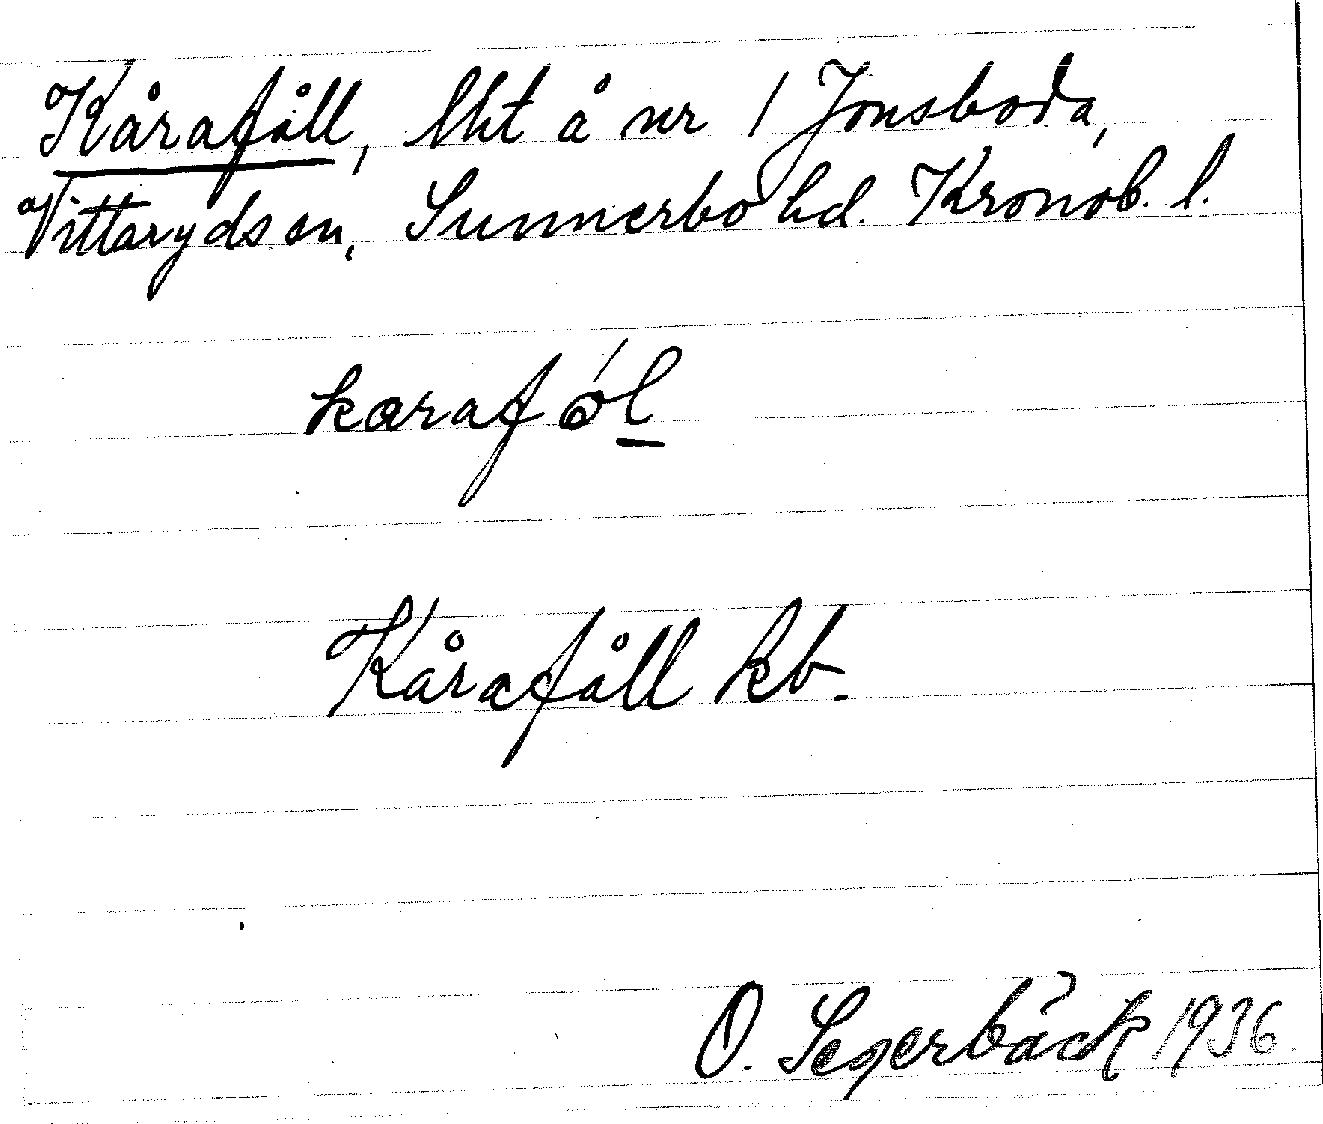 Kårafåll, lht å nr 1 Jonsboda,
Vittaryds sn, Sunnerbo hd. Kronob. l.
karafól
Kårafåll kb.
O. Segerbäck 1936